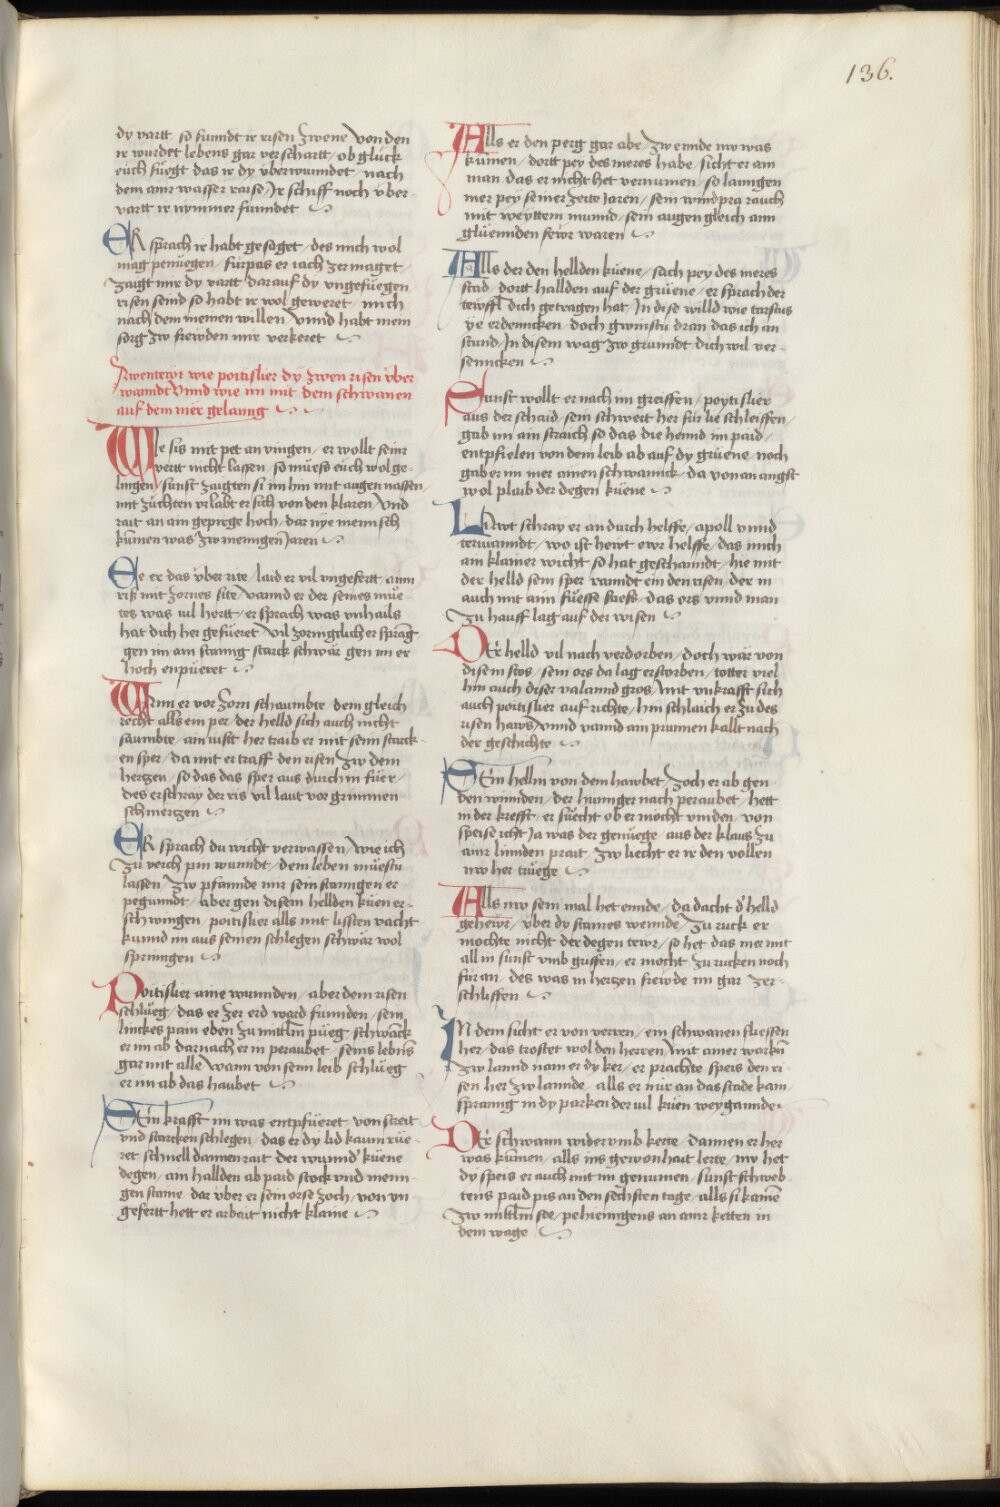 136.
dy vartt so funndt ir risen zwene Von den
ir wurdet lebens gar verschartt / ob glück
euch füegt das ir dy vberwunndet / nach
dem ainr wasser rarse Ir schiff noch vber
vartt ir nymmer funndet
ER sprach ir habt gesaget / des mich wol
mag penüegen / fürpas er iach zer maget /
zaigt mir dy vartt darauf dy vngefüegen
risen seind so habt ir wol geweret / mich
nach dem meinen willen Vnnd habt mein
sorg zw frewden mir verkeret
Awentewr wie poitislier dy zwen risen vber
wanndt Vnnd wie im mit dem schwanen
auf dem mer gelanng
WIe sis mit pet an viengen / er wollt seinr
vertt nicht lassen / so müess euch wol ge-
lingen / sunst zaigten si im hin mit augen nassen
mit züchten vrlabt er sich von den klaren / Vnd
rait an ain gepirge hoch / dar nye mennsch
kumen was zw menngen Jaren
EE er das vber rite / laid er vil vngefertt / ainn
ris mit zornes site / vannd er der seines mue-
tes was vil hertt / er sprach was vnhails
hat dich her gefüeret Vil zoringklich er sprang
gen im ain stanng starck schwär gen im er
hoch enpüeret
WAnn er vor Zorn schaumbte / dem gleich
recht alls ein per / der helld sich auch nicht
saumbte / ain iusst her traib er mit seim starck-
en sper / da mit er traff den risen zw dem
hertzen / so das das sper aus durch in füer /
des erschray der ris vil laut vor grimmen
schmertzen
ER sprach du wicht verwassen / Wie ich
zu verch pin wunndt / dein leben müestu
lassen / zw pfannde mir sein stanngen er
pegunndt / aber gen disem hellden küen er-
schwingen / poitislier alls mit lissten vacht
kunnd im aus seinen schlegen schwär wol
springen
POitislier aine wunnden / aber dem risen
schlueg / das er zer erd ward funnden / sein
linckes pain eben zu mitlm pueg / schwanck
er im ab darnach er in peraubet / seins lebns
gar mit alle Wann von seim leib schlüeg
er im ab das haubet
SEin krafft im was entpfüeret / von streit
vnd starcken schlegen / das er dy lid kaum rüe-
ret schnell dannen rait der wunnd' küene
degen / ain hallden ab paid stock vnd menn-
gen stame / dar vber er sein orse zoch / von vn
gefertt hett er arbait nicht klaine
ALls er den perg gar abe / zw ennde nw was
kumen / dortt pey des meres habe / sicht er ain
man das er nicht het vernumen / so lanngen
mer pey seiner zeite Jaren / sein windpra rauch
mit weyttem munnd / sein augen gleich ainn
glüennden fewr waren
ALls der den hellden küene / sach pey des meres
stad / dortt hallden auf der grüene / er sprach der
tewffl dich getragen hat / In dise willd wie tarstus
ye erdenncken / doch gwinstu dran das ich an
stund / In disem wag zw grunndt dich wil ver-
senncken
Sunst wollt er nach im greiffen / poytislier
aus der schaid / sein schwert her für lie schleiffen /
gab im ain straich so das die hennd im paid /
entpfielen von dem leib ab auf dy grüene / noch
gab er im mer ainen schwannck / da von an angst
wol plaib der degen küene
LAwt schray er an durch helffe / apoll vnnd
terwanndt / wo ist hewt ewr helffe / das mich
ain klainer wicht so hat geschanndt / hie mit
der helld sein sper ranndt ein den risen / der in
auch mit aim füesse stiess / das ors vnnd man
zu hauff lag auf der wisen
DEr helld vil nach verdorben / doch wär von
disem stos / sein ors da lag erstorben / totter viel
hin auch diser valannd gros / Mit vnkrafft sich
auch poitislier auf richte / hin schlaich er zu des
risen haws Vnnd vannd ain prunnen kallt nach
der geschichte
SEin hellm von dem hawbet / zoch er ab gen
den winnden / der hunnger nach peraubet / hett
in der krefft / er suecht ob er mocht vinden / von
speise icht Ja was der genüege / aus der klaus zu
ainr linnden prait / zw liecht er ir den vollen
nw her trüege
ALls nw sein mal het ennde / da dacht d' helld
gehewr / vber dy staines wennde / zu ruck er
mochte nicht der degen tewr / so het das mer mit
all in sunst vmb griffen / er mocht zu rucken noch
für an / des was in hertzen frewde im gar zer-
schliffen
IN dem sicht er von verren / ein schwanen fliessen
her / das trostet wol den herren / Mit ainer warkn
zw lannd nam er dy ker / er prachte speis den ri-
sen her zw lannde / alls er nur an das stade kam
sprannng in dy parken der vil küen weygannde
DEr schwann wider vmb kerte / dannen er her
was kumen / alls ins gewonhait lerte / nw het
dy speis er auch mit im genumen / sunst schweb
tens paid pis an den sechsten tage / alls si kamen
zw mitlm see / pehienngens an ainr ketten in
dem wage